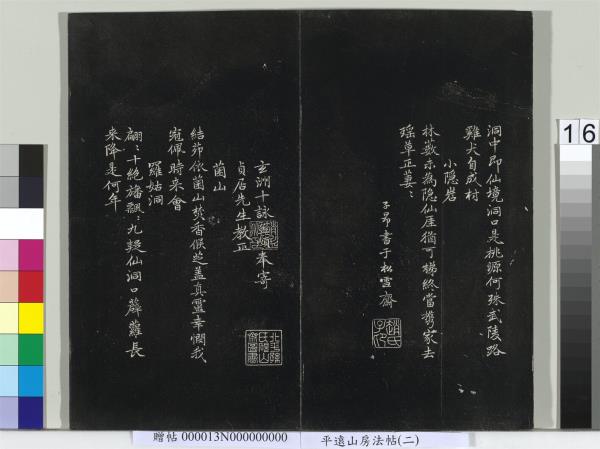 洞中即仙境洞口是桃源何殊武陵路
雞犬自成村
小隱岩
林藪亦為隱仙崖猶可梯終當携家去
瑤草正萋〻
子昂書于松雪齋
趙氏子昂
玄洲十詠
奉寄
貞居先生教正
菌山
結茆依菌山焚香候芝蓋真靈幸憫我
宛佩時来會
羅姑洞
翩〻十絶旛飄〻九疑仙洞口薜蘿長
来降是何年
16
贈帖 000013N000000000
平遠山房法帖(二)